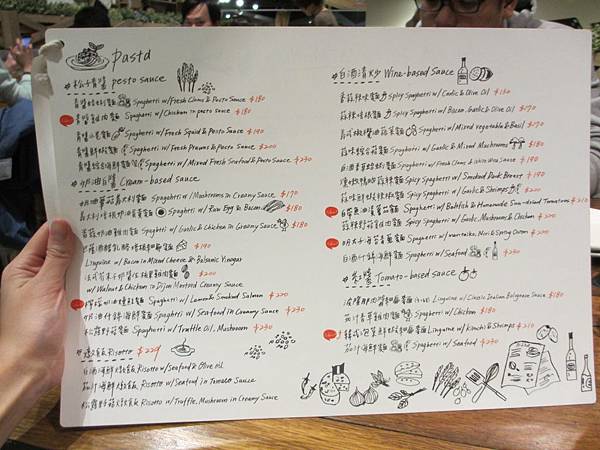 pasta
#松子青醬 pesto sauce
青醬蛤蜊麵 Spaghetti w/Fresh Clams & Pesto Sauce $180
青醬雞肉麵 Spaghetti w/Chicken in pesto sauce $180
青醬小卷麵 Spaghetti w/Fresh Squid & Pesto Sauce $190
青醬鮮蝦麵 Spaghetti w/Fresh Prawns & Pesto Sauce $200
青醬綜合海鮮麵 Spaghetti w/Mixed Fresh Seafood & Pesto Sauce $230
#奶油白醬 Cream-based sauce
奶油蘑菇義大利麵 Spaghetti w/Mushrooms in Creamy Sauce $170
義大利培根奶油蛋黃麵 Spaghetti w/Raw Egg & Bacon $180
蒜菇奶油雞肉麵 Spaghetti w/Garlic & Chicken in Creamy Sauce $180
$190
Linguine w/Bacon in Mixed Cheese & Balsamic Vinegar
$200
w/Walnut & Chicken in Dijon Mustard Creamy Sauce
檸檬奶油燻鮭麵 Spaghetti w/Lemon & Smoked Salmon $220
奶油什錦海鮮麵 Spaghetti w/Seafood in Creamy Sauce $230
松露野菇麵 Spaghetti w/Truffle Oil, Mushroom $230
#燉飯 Risotto $229
白酒海鮮燉飯 Risotto w/Seafood & Olive oil
茄汁海鮮燉飯 Risotto w/Seafood in Tomato Sauce
松露野菇燉飯 Risotto w/Truffle, Mushroom in Creamy Sauce
#白酒清炒 Wine-based Sauce
Spicy Spaghetti w/Garlic & Olive Oil $150
蒜辣培根麵 Spicy Spaghetti w/Bacon, Garlic & Olive Oil $170
Spaghetti w/Mixed Vegetable & Basil $170
蒜味綜合菇麵 Spaghetti w/Garlic & Mixed Mushrooms $180
白酒蒜香蛤蜊麵 Spaghetti w/Fresh Clams & White Wine Sauce $190
Spicy Spaghetti w/Smoked Duck Breast $190
Spicy Spaghetti w/Garlic & Shrimps $200
Spaghetti w/Batfish & Homemade Sun-dried Tomatoes $210
蒜辣野菇雞肉麵 Spicy Spaghetti w/Garlic, Mushroom & Chicken $200
明太子海苔青蔥麵 Spaghetti w/mentaiko, Nori & Spring Onion $220
白酒什錦海鮮麵 Spaghetti w/Seafood $230
#紅醬 Tomato-based sauce
波隆那肉醬 Linguine w/Classic Italian Bolognese Sauce $180
茄汁香草雞肉麵 Spaghetti w/Chicken $180
韓式泡菜鮮蝦細扁麵 Linguine w/Kimchi & Shrimps $210
茄汁海鮮麵 Spaghetti w/Seafood $230